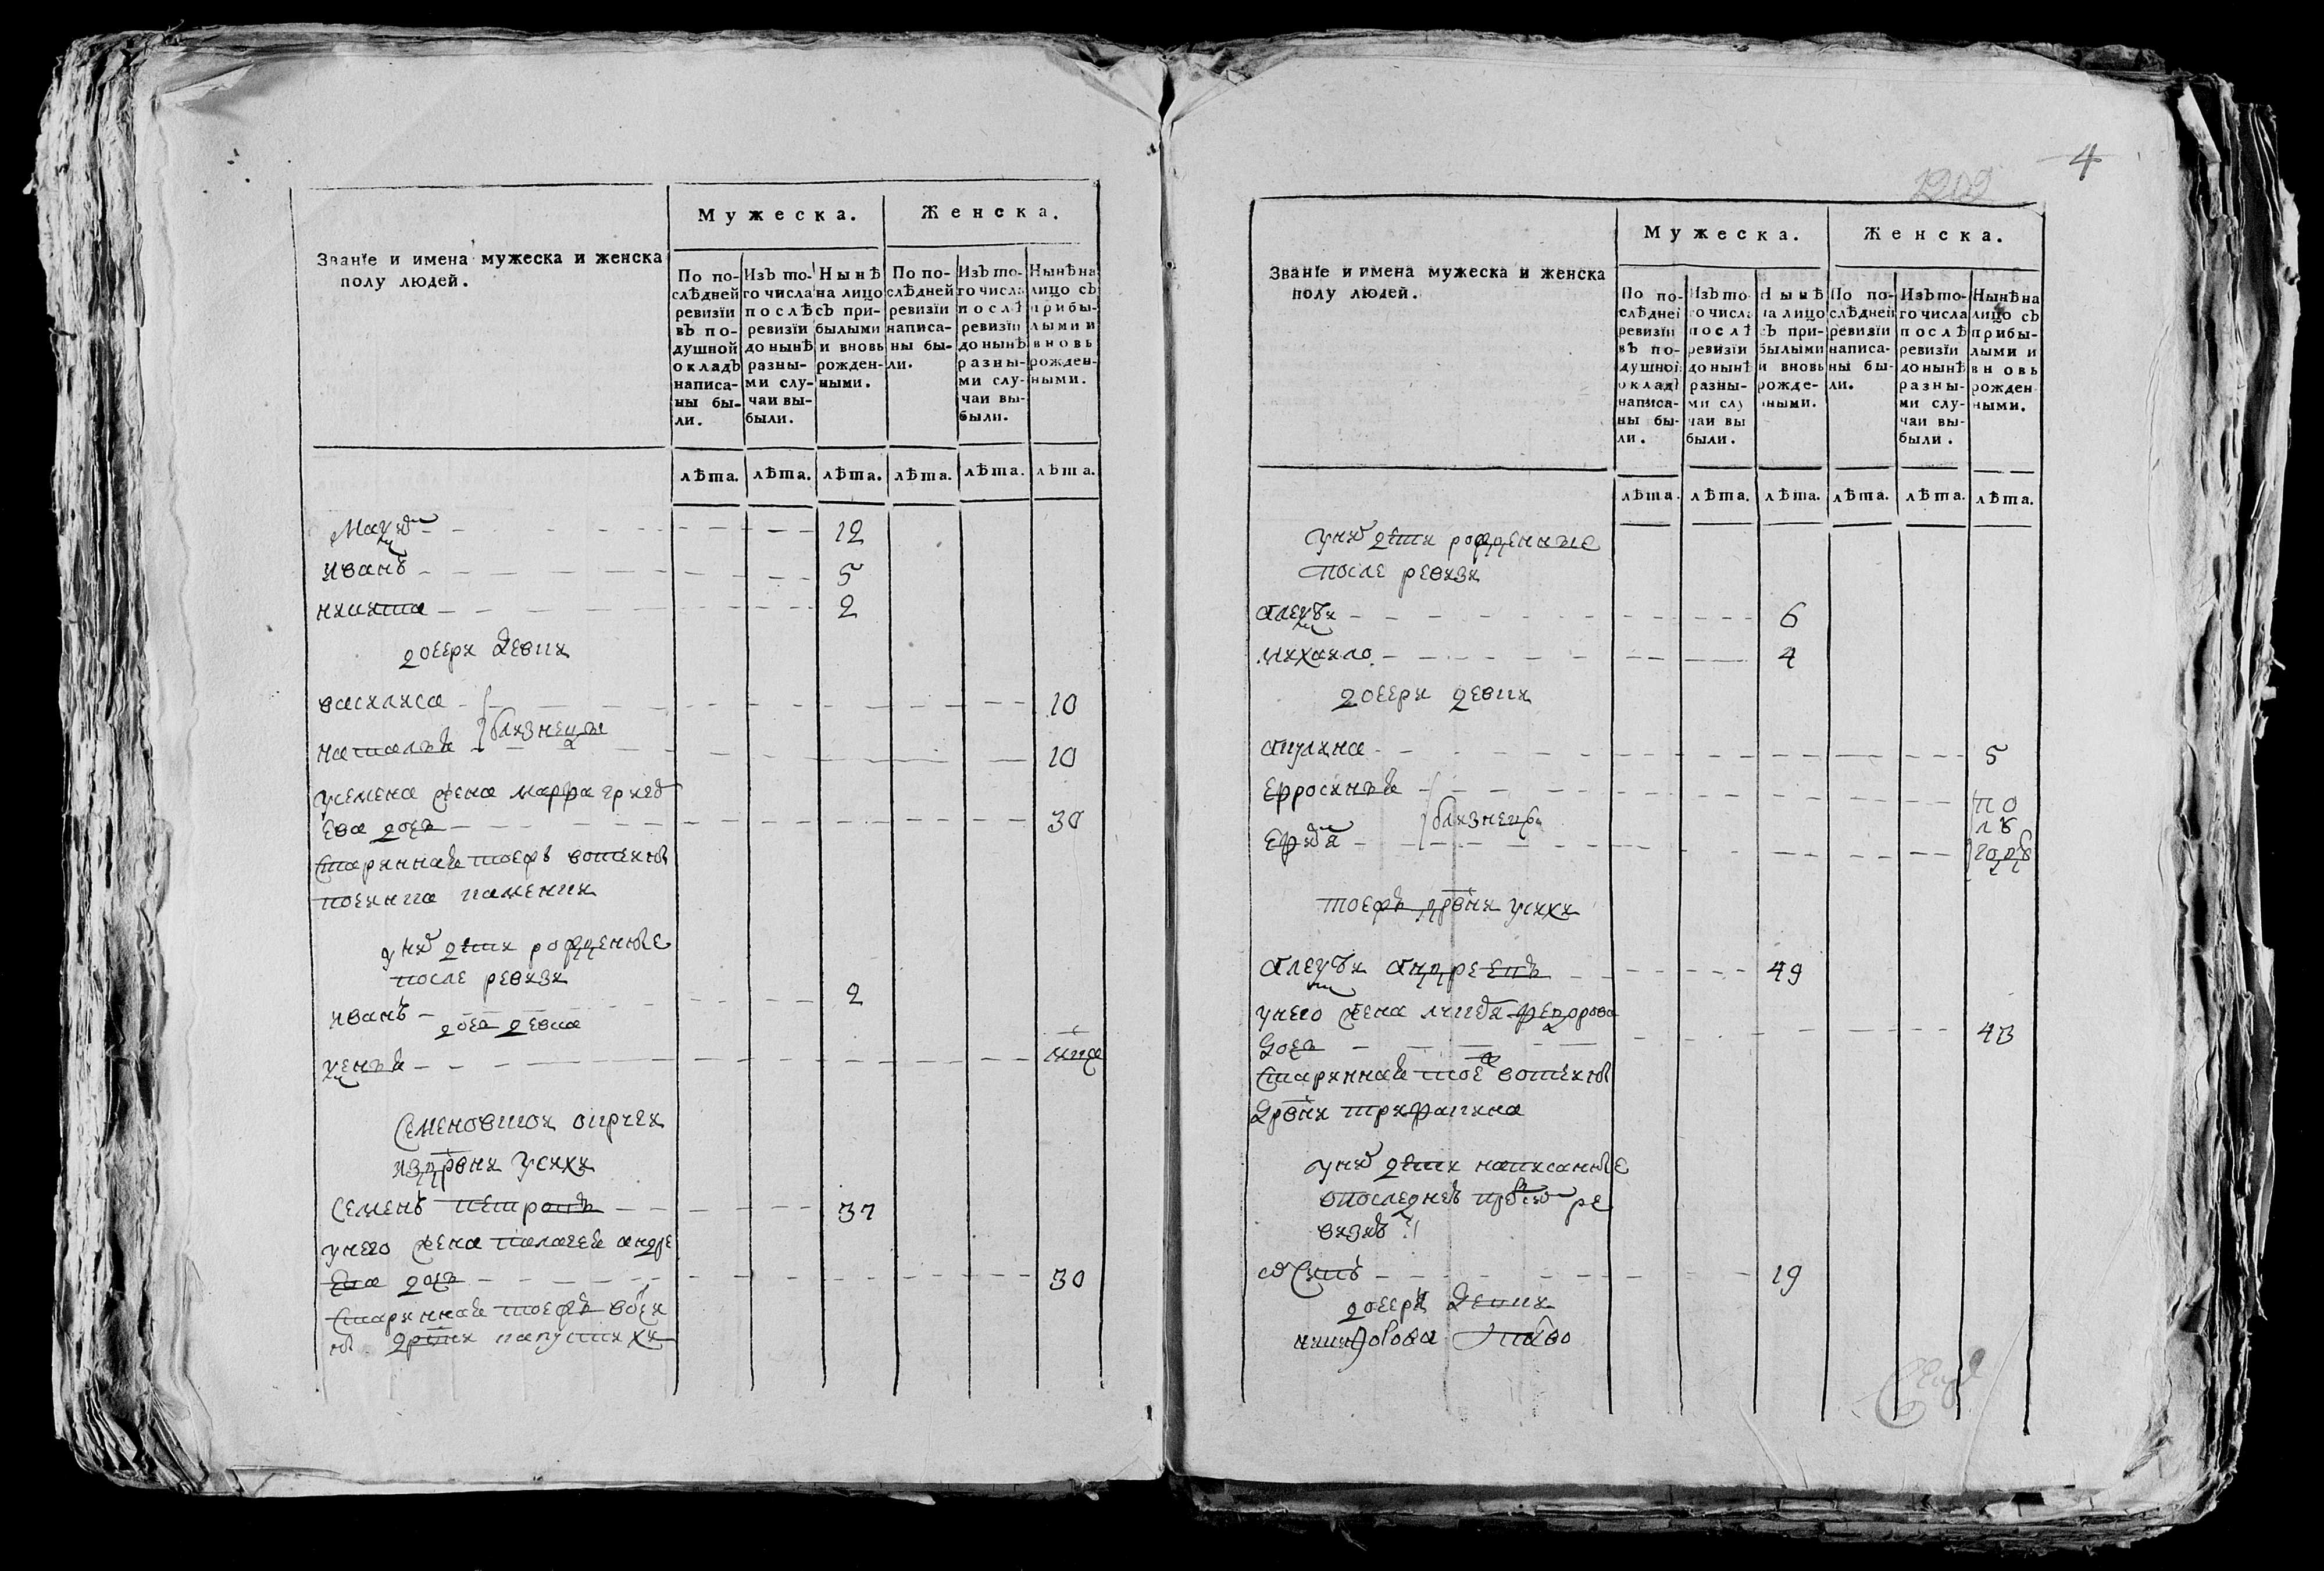 Званїе и имена мужеска и женска
полу людей.
Мужеска.
Женска.
По по-
слѣдней
ревизїи
въ по-
душной
окладъ
написа-
ны бы-
ли.
Изъ то-
го числа
послѣ
ревизїи
до нынѣ
разны-
ми слу-
чаи вы-
были.
Нынѣ
на лицо
съ при-
былыми
и вновь
рожден-
ными.
По по-
слѣдней
ревизїи
написа-
ны бы-
ли.
Изъ то-
го числа
послѣ
ревизїи
до нынѣ
разны-
ми слу-
чаи вы-
были.
Нынѣ на
лицо съ
прибы-
лыми и
вновь
рожден-
ными.
лѣта. лѣта. лѣта. лѣта. лѣта. лѣта.
12
иванъ 5
никита 2
дочери девки
василиса 10
близнецы
наталья 10
усемена жена марфа григо
ева дочь 30
старинная тоежъ вотчины
починка
уних дети рожденые
после ревизи
иванъ 2
дочь девка
семеновшои
издрвни усихи
семенъ петровъ 37
унего жена палагея андре
ева дочь 30
старинная тоежъ вотчи
ны дрвни папустихи
4
1202
Званїе и имена мужеска и женска
полу людей.
Мужеска.
Женска.
По по-
слѣдней
ревизїи
въ по-
душной
окладъ
написа-
ны бы-
ли.
Изъ то-
го числа
послѣ
ревизїи
до нынѣ
разны-
ми слу
чаи вы
были.
Нынѣ
на лицо
съ при-
былыми
и вновь
рожде-
нными.
По по-
слѣдней
ревизїи
написа-
ны бы-
ли.
Изъ то-
го числа
послѣ
ревизїи
до нынѣ
разны-
ми слу-
чаи вы-
были.
Нынѣ на
лицо съ
прибы-
лыми и
вновь
рожден
ными.
лѣта. лѣта. лѣта. лѣта. лѣта. лѣта.
уних дети рожденные
после ревизи
алексеи 6
михаило 4
дочери девки
акулина 5
ефросинья
близнецы
пол
году
тоежъ дрвни усихи
алексеи андреевъ 49
унего жена федорова
дочь 43
старинная тоеж вотчины
дрвни трифакина
уних дети написаные
впоследнеи пред сим ре
визии
осипъ 19
дочери девки